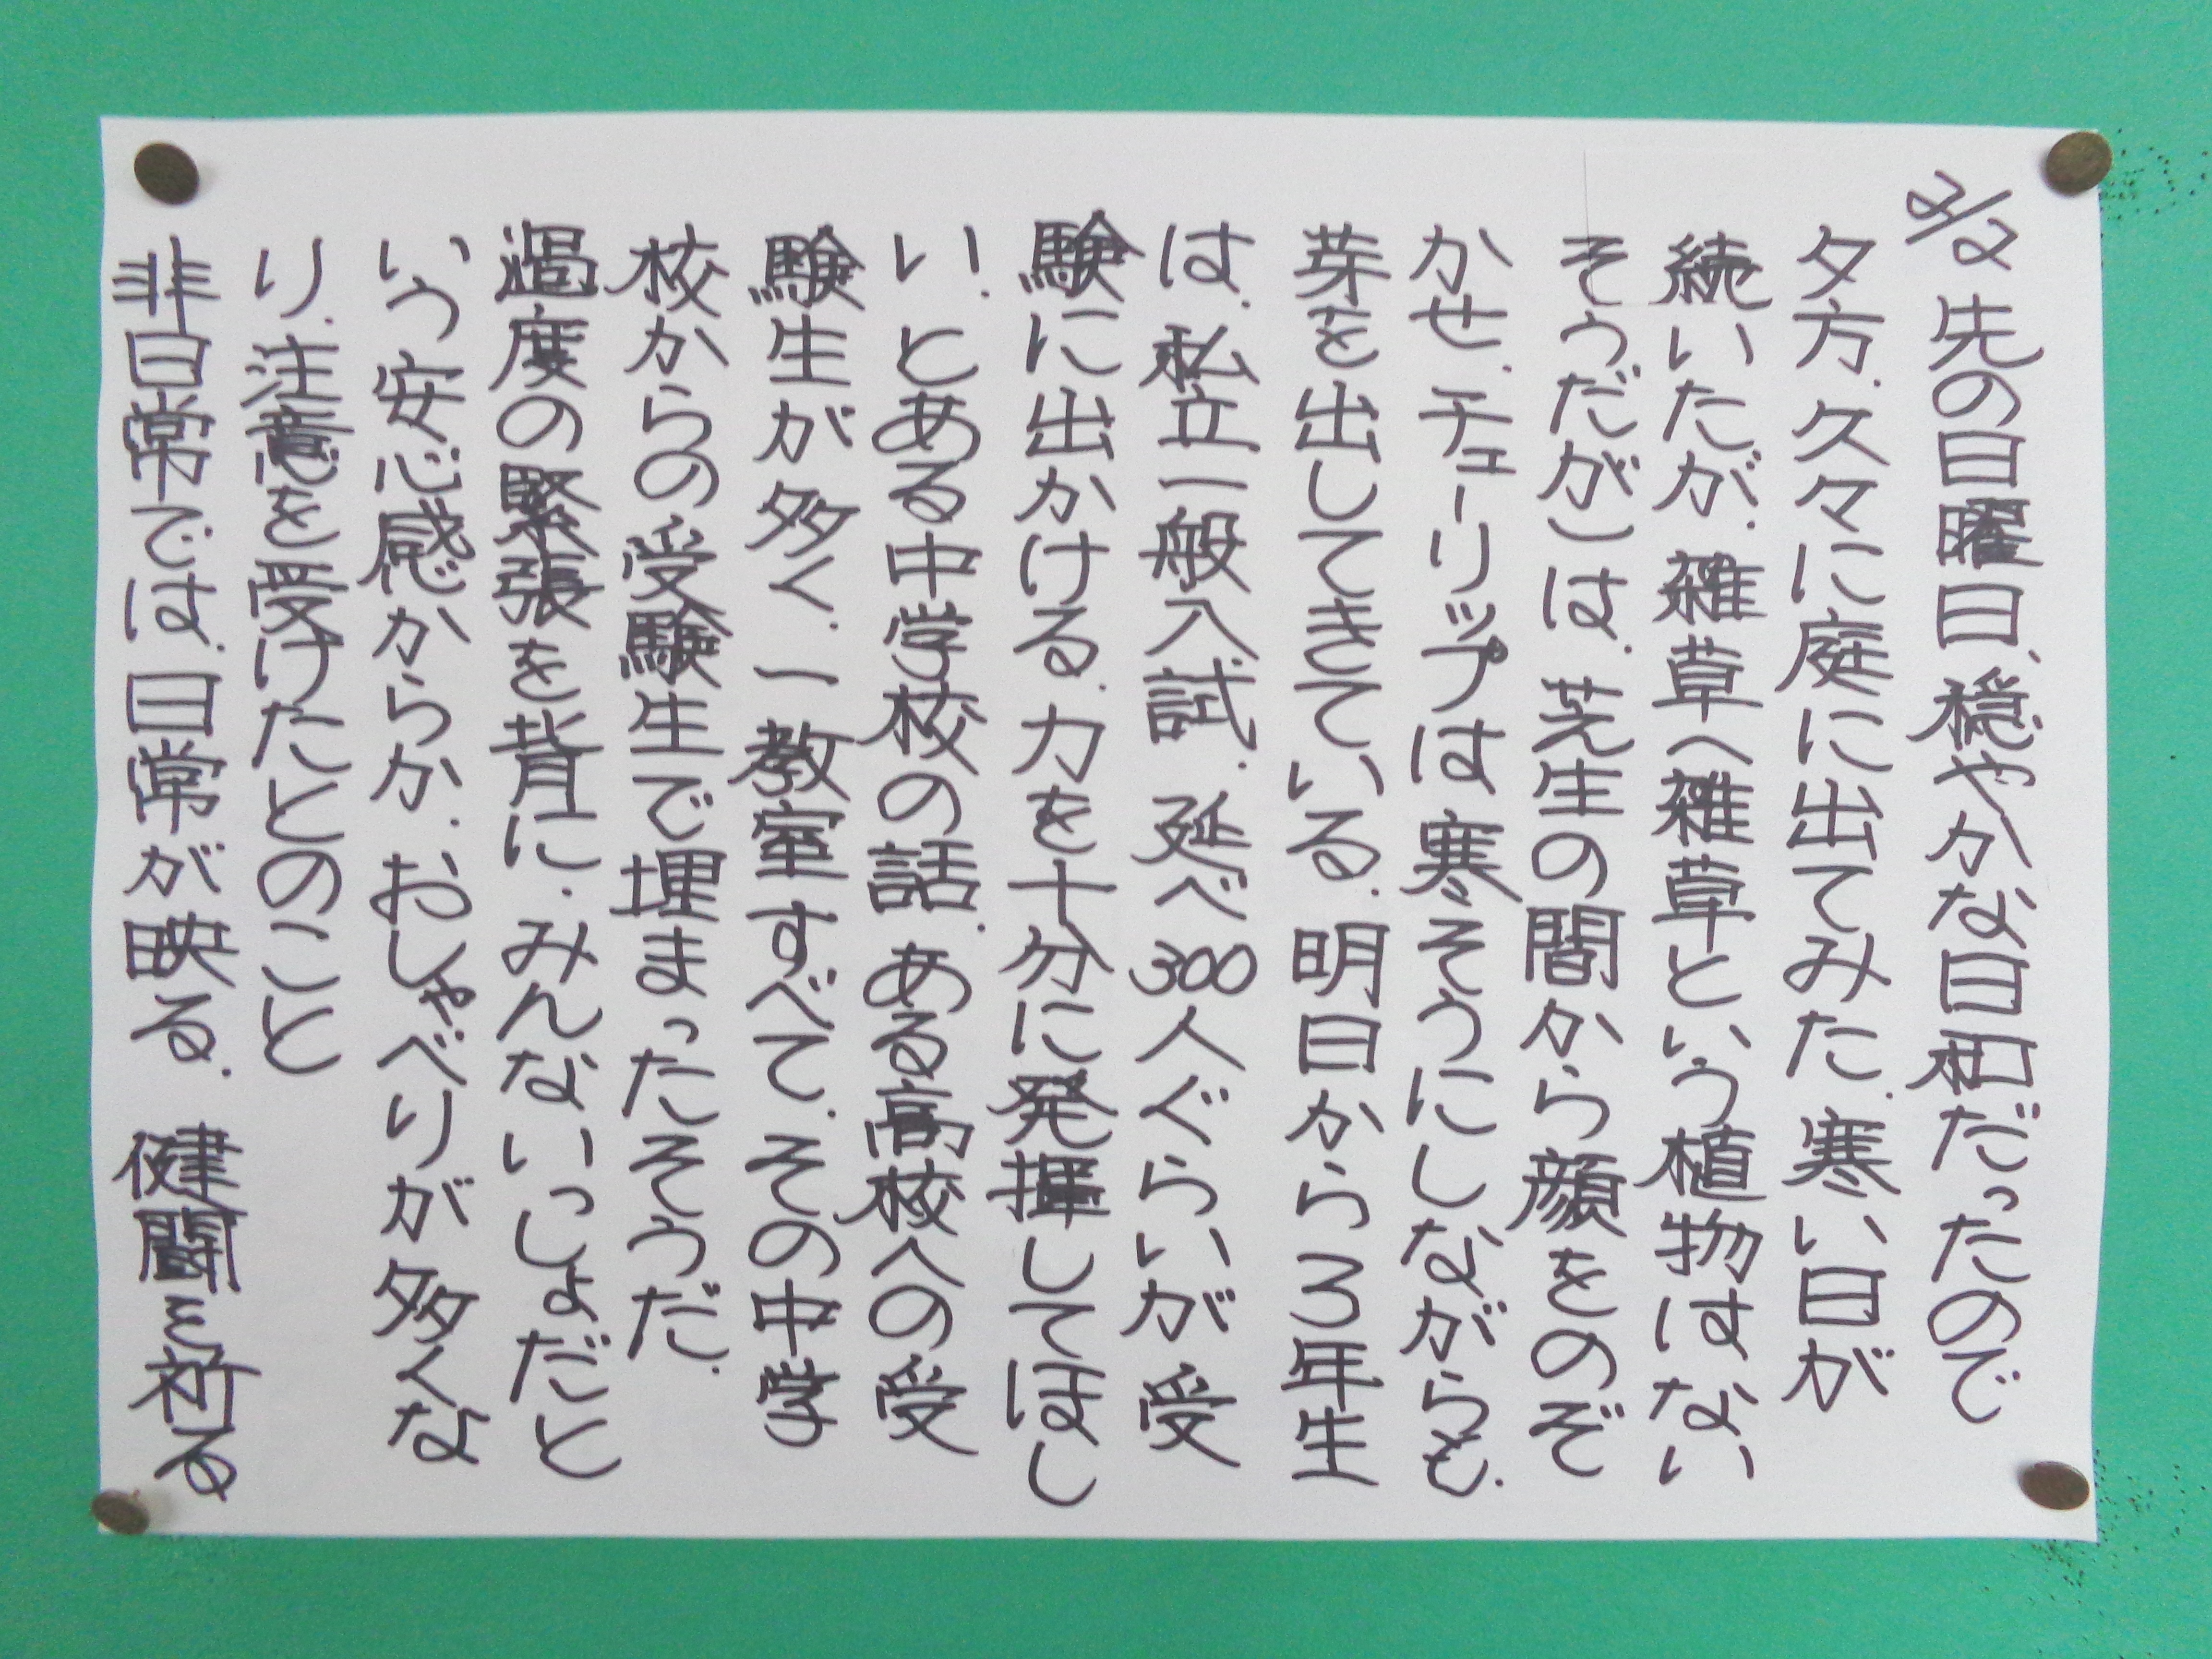 2/2 先の日曜日、穏やかな日和だったので
夕方、久々に庭に出てみた。寒い日が
続いたが、雑草(雑草という植物はない
そうだが)は、芝生の間から顔をのぞ
かせ、チューリップは寒そうにしながらも、
芽を出してきている。明日から3年生
は、私立一般入試。延べ300人ぐらいが受
験に出かける。力を十分に発揮してほし
い。とある中学校の話。ある高校への受
験生が多く、一教室すべて、その中学
校からの受験生で埋まったそうだ。
過度の緊張を背に、みんないっしょだと
いう安心感からか、おしゃべりが多くな
り、注意を受けたとのこと
非日常では、日常が映る。 健闘を祈る